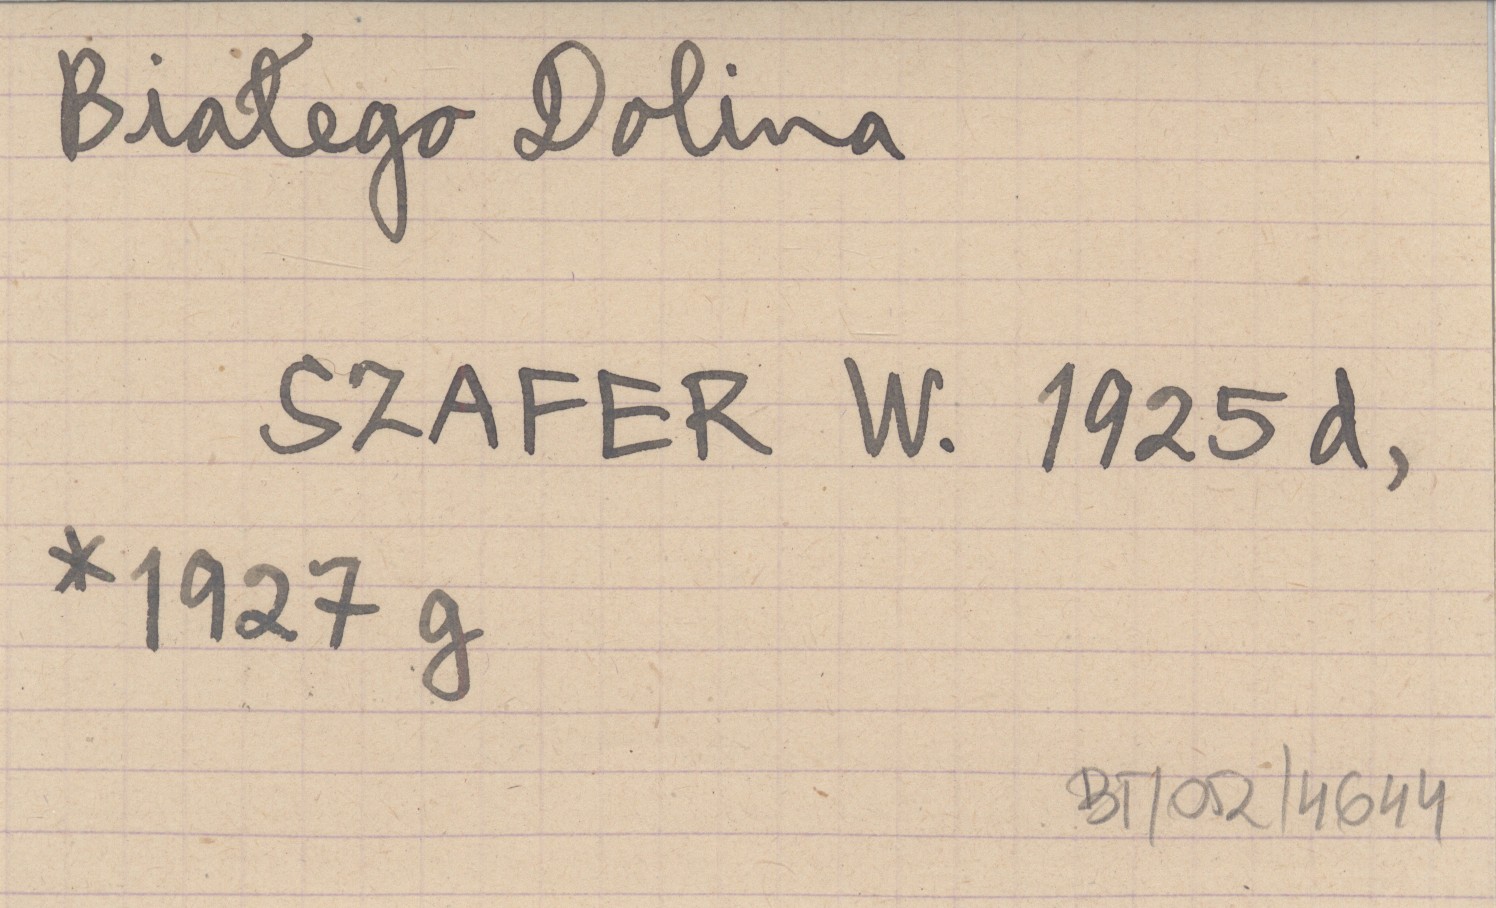 Białego Dolina
SZAFER W. 1925 d,
*1927 g
BT/052/4644